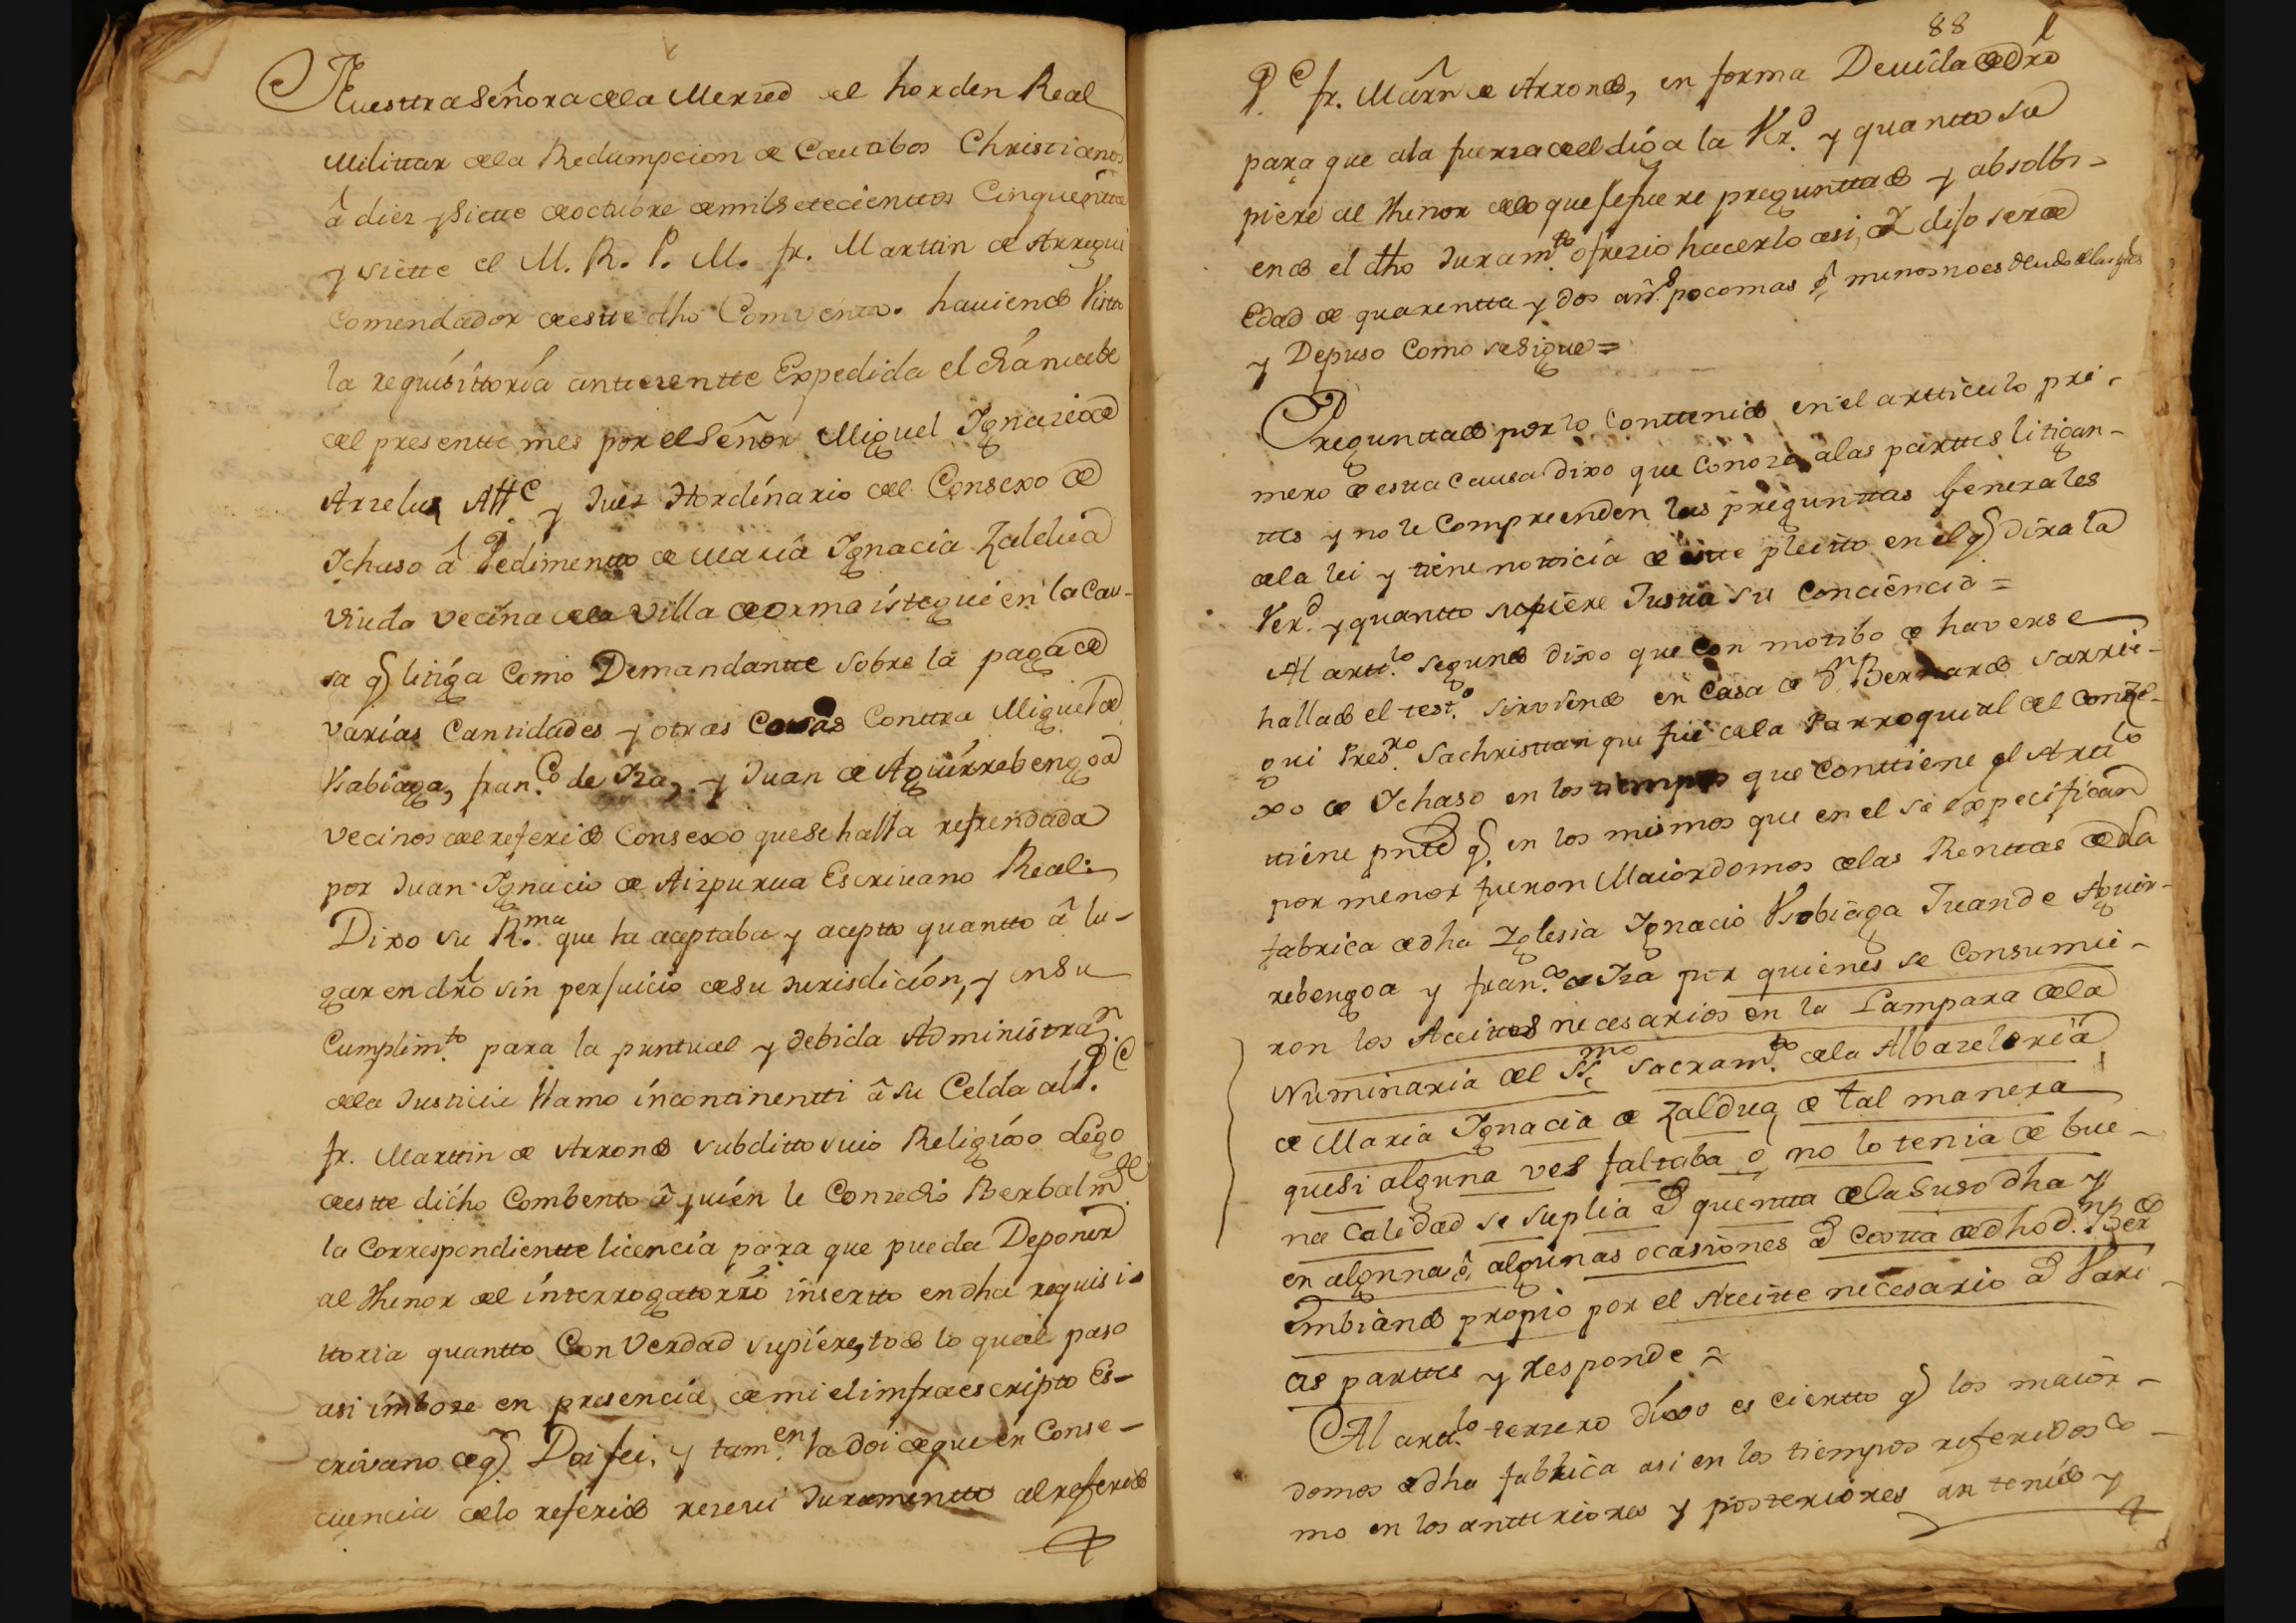 Nuesttra Señora de la Merzed del horden Real
Milittar de la Redumpcion de Cauttibos Christianos
â diez y Siette de octubre de mil Setecienttos Cinquentta
y siette el M. R. P. M. fr. Marttin de Arregui
Comendador de estte dho Comvento. haviendo Visto
la requisittoria anttezentte Expedida el dia nuebe
del presentte mes por el Señor Miguel Ignazio de
Arzelus Alle. y Juez Hordinario del Consexo de
Ichaso â Pedimentto de Maria Ignacia Zaldua
Viuda Vecina de la Villa de ormaistegui en la Cau-
sa q litiga Como Demandantte sobre la paga de
varias Canttidades y otras Cosas Conttra Miguel de
Usabiaga, fran.co de Iza, y Juan de Aguirrebengoa
vecinos del referido Consexo que se halla refrendada
por Juan Ignacio de Aizpurua Escrivano Real:
Dixo su R.ma que la aceptaba y acepto quantto â lu-
gar en dro sin perjuicio de su Jurisdición, y en su
Cumplim.to para la puntual y debida Administra.n
de la Justicia llamo incontinentti â su Celda al P.e
fr. Marttin de Arrondo subditto suio Religioso Lego
de estte dicho Combento â quién le Conzedió Berbalm.te
la Correspondientte licencia para que pueda Deponer
al thenor del interrogatorio insertto en dha requisi-
ttoria quantto Con Verdad supiére, todo lo qual paso
asi imboze en presencia de mi el imfraescripto Es-
crivano de q Doi fei. y tam.en la doi de que en Conse-
cuencia de lo referido rezevi Juramentto al referido
88
P.e fr. Mârn de Arrondo, en forma Devida de dro
para que ala fuerza del dió a la Vr.d y quantto su
piere al thenor de lo que se fuere preguntado y absolbi-
endo el dho Juram.to ofrezio hacerlo asi, y dijo ser de
Edad de quarentta y dos añ.s poco mas ô, menos no es deudo de las ptes
y Depuso Como se Sigue=
Preguntado por lo Conttenido en el artticulo pri-
mero de esta Causa dixo que Conoze a las parttes litigan-
ttes y no le Compreenden las preguntas Generales
de la lei y tiene notticia de este pleitto en el q dira la
Ver.d y quantto supiere Justta su Conciencia=
Al artt.lo segundo dixo que con motibo de haverse
hallado el test.o sirviendo en Casa de d.n Bernardo sarrie-
gui Pres.ro Sachristtan que fué de la Parroquial del conze-
xo de Ichaso en los tiempos que Conttiene el Artt.lo
ttiene pntte q, en los mismos que en el se Expecifican
por menor fueron Maiordomos de las Renttas de la
fabrica de dha Iglesia Ignacio Usabiaga Juan de Aguir-
rebengoa y fran.co de Iza por quienes se Consumie-
ron los Aceites necesarios en la Lampara de la
Numinaria del SS.mo Sacram.to de la Albazeleria
de Maria Ignacia de Zaldua de tal manera
que si alguna ves faltaba o, no lo tenia de bue-
na Calidad se suplia â quentta de la Suso dha y
en alguna ô, algunas ocasiones â Costta de dho d.n Ber.do
Embiando propio por el Aceitte necesario â Vari-
as parttes y Responde=
Al artt.lo terzero dixo es ciertto q los maior-
domos de dha fabrica asi en los tiempos referidos co-
mo en los antteriores y posteriores an tenido y